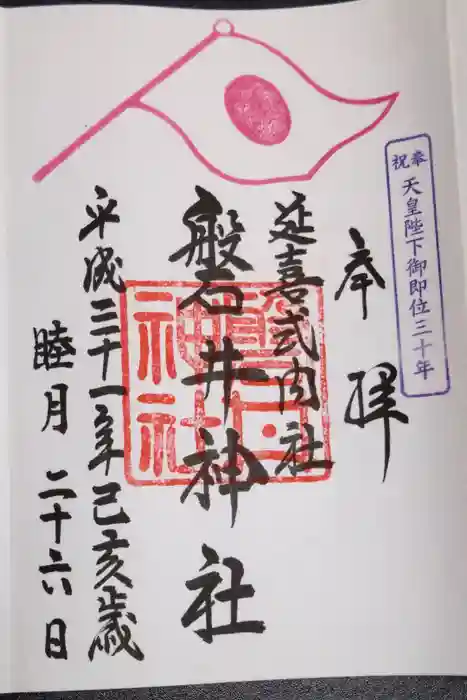 奉祝 天皇陛下御即位三十年
奉拝
延喜式内社
磐井神社
平成三十一年己亥歳
睦月二十六日
磐井神社